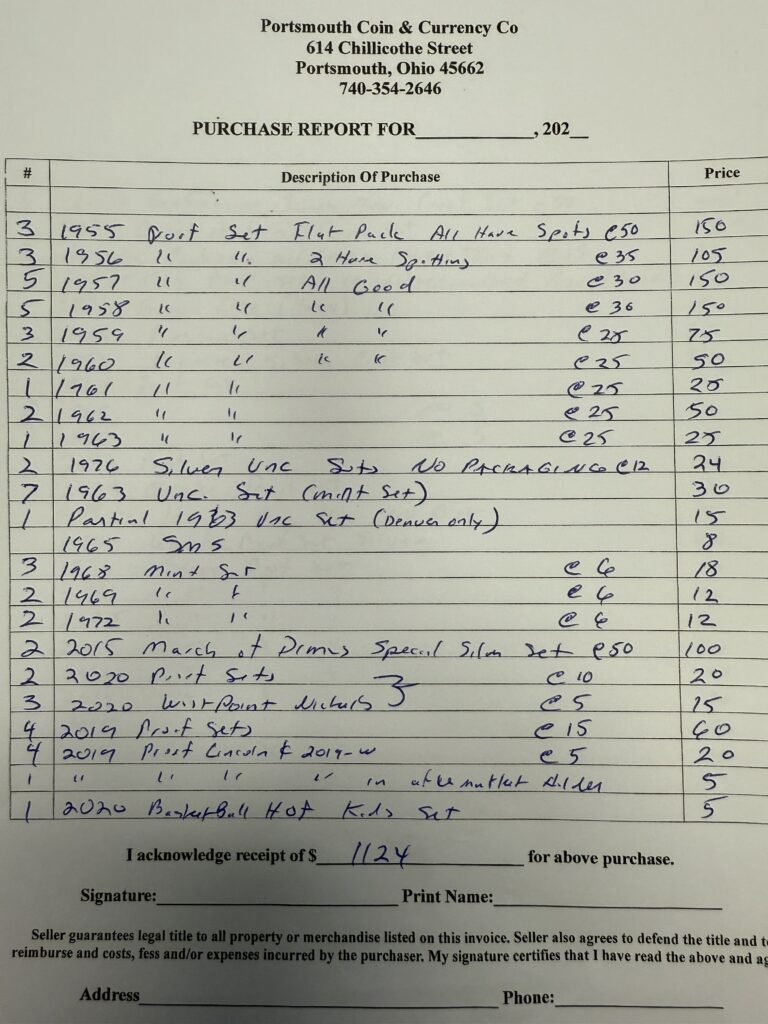 Portsmouth Coin & Currency Co
614 Chillicothe Street
Portsmouth, Ohio 45662
740-354-2646
PURCHASE REPORT FOR____________, 202__
# Description Of Purchase Price
3 1955 Proof Set Flat Pack All Have Spots @50 150
3 1956 " " 2 Have Spotting @35 105
5 1957 " " All Good @30 150
5 1958 " " " " @30 150
3 1959 " " " " @25 75
2 1960 " " " " @25 50
1 1961 " " @25 25
2 1962 " " @25 50
1 1963 " " @25 25
2 1976 Silver Unc Sets NO PACKAGING @12 24
1963 Unc. Set (mint Set) 30
1 Partial 1963 Unc Set (Denver only) 15
1965 Sms 8
3 1968 Mint Set @6 18
2 1969 " " @6 12
2 1972 " " @6 12
2 2015 March of Dimes Special Silver Set @50 100
2 2020 Proof Sets @10 20
3 2020 West Point Nickels @5 15
4 2019 Proof Sets @15 60
4 2019 Proof Lincoln ¢ 2019-W @5 20
1 " " " " in aftermarket Holder 5
1 2020 BasketBall HOF Kids Set 5
I acknowledge receipt of $ 1124 for above purchase.
Signature:____________ Print Name:____________
Seller guarantees legal title to all property or merchandise listed on this invoice. Seller also agrees to defend the title and t
reimburse and costs, fess and/or expenses incurred by the purchaser. My signature certifies that I have read the above and ag
Address____________ Phone:____________